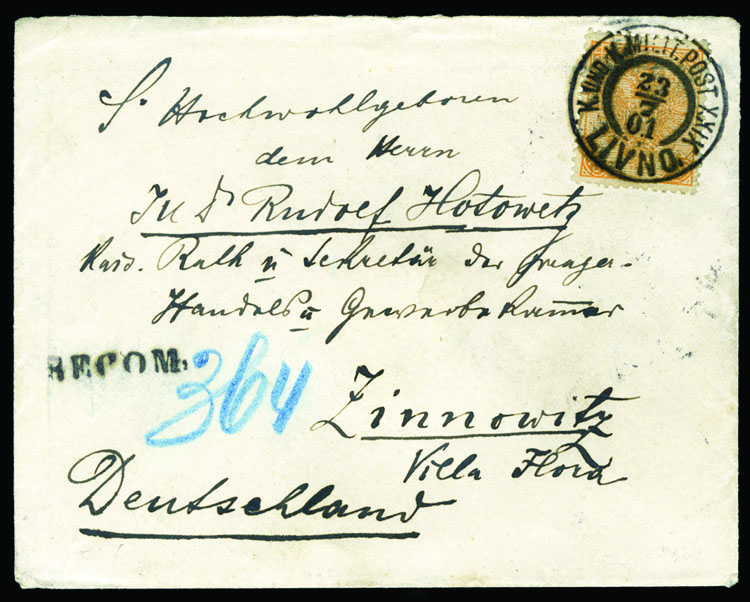 K. UND K. MILIT. POST XXIX
23
7
01
LIVNO
S. Hochwohlgeboren
dem Herrn
JU Dr Rudolf Hotowetz
Kais. Rath u Sekretär der Prager-
Handels u Gewerbekammer
RECOM.
364
Zinnowitz
Villa Flora
Deutschland